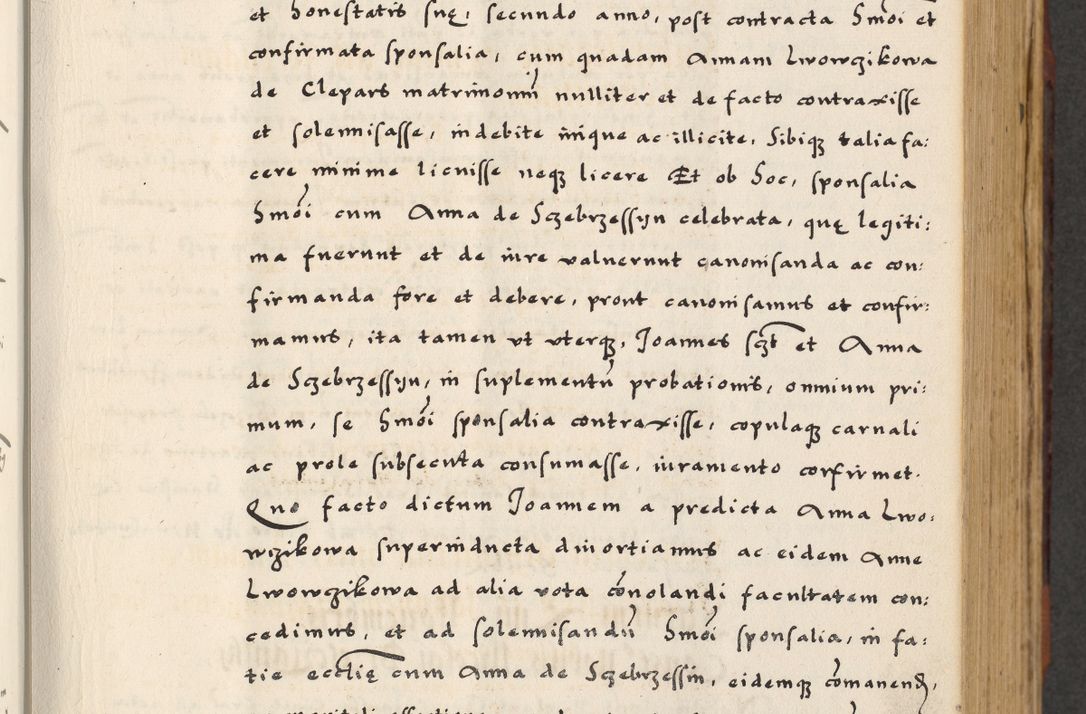 et honestatis suę, secundo anno, post contracta hmōi et
confirmata sponsalia, cum quadam Annam Lwowczikowa
de Clepars matrimoniū nulliter et de facto contraxisse
et solennisasse, indebite iniq̃ue ac illicite, Sibiqꝫ talia fa:
cere minime licuisse neqꝫ licere Et ob hoc, sponsalia
hmōi cum Anna de Sczebrzessyn celebrata, quę legiti:
ma fuerunt et de iure valuerunt canonisanda ac con:
firmanda fore et debere, prout canonisamus et confir:
mamus, ita tamen vt vterqꝫ, Joannes sc̃zt et Anna
de Sczebrzessyn, in suplementū probationis, omnium pri:
mum, se hmōi sponsalia contraxisse, copulaqꝫ carnali
ac prole subsecuta consumasse, iuramento confirmet.
Quo facto dictum Joannem a predicta Anna Lwo:
wczikowa superinducta diuortiamus ac eidem Anne
Lwowczikowa ad alia vota cōnolandi facultatem con:
cedimus, et ad solennisandū hmōi sponsalia, in fa:
tie ecclię cum Anna de Sczebrzessin, eidemqꝫ cōmanend,